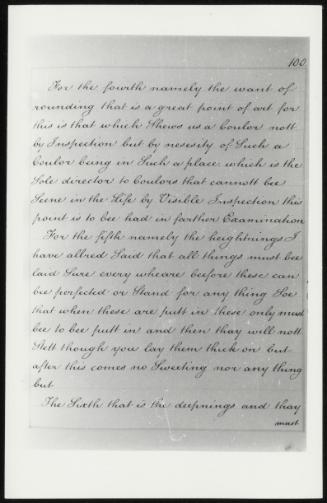 100
For the fourth namely the want of
rounding that is a great point of art for
this is that which Shews us a Coulor nott
by Inspection but by nesesity of Such a
Coulor being in Such a place which is the
Sole director to Coulors that cannott bee
Seene in the Life by Visible Inspection this
point is to bee had in farther Examination
For the fifth namely the heightnings I
have allred Said that all things must bee
laid Sure every wheare beefore these can
bee perfected or Stand for any thing Soe
that when these are putt in these only must
bee to bee putt in and then thay will nott
Sett though you lay them thick on but
after this comes no Sweeting nor any thing
but
The Sixth that is the deepnings and thay
must